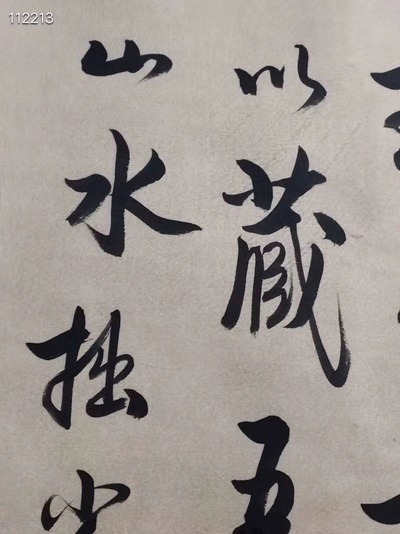 112213
以藏五
山水拙